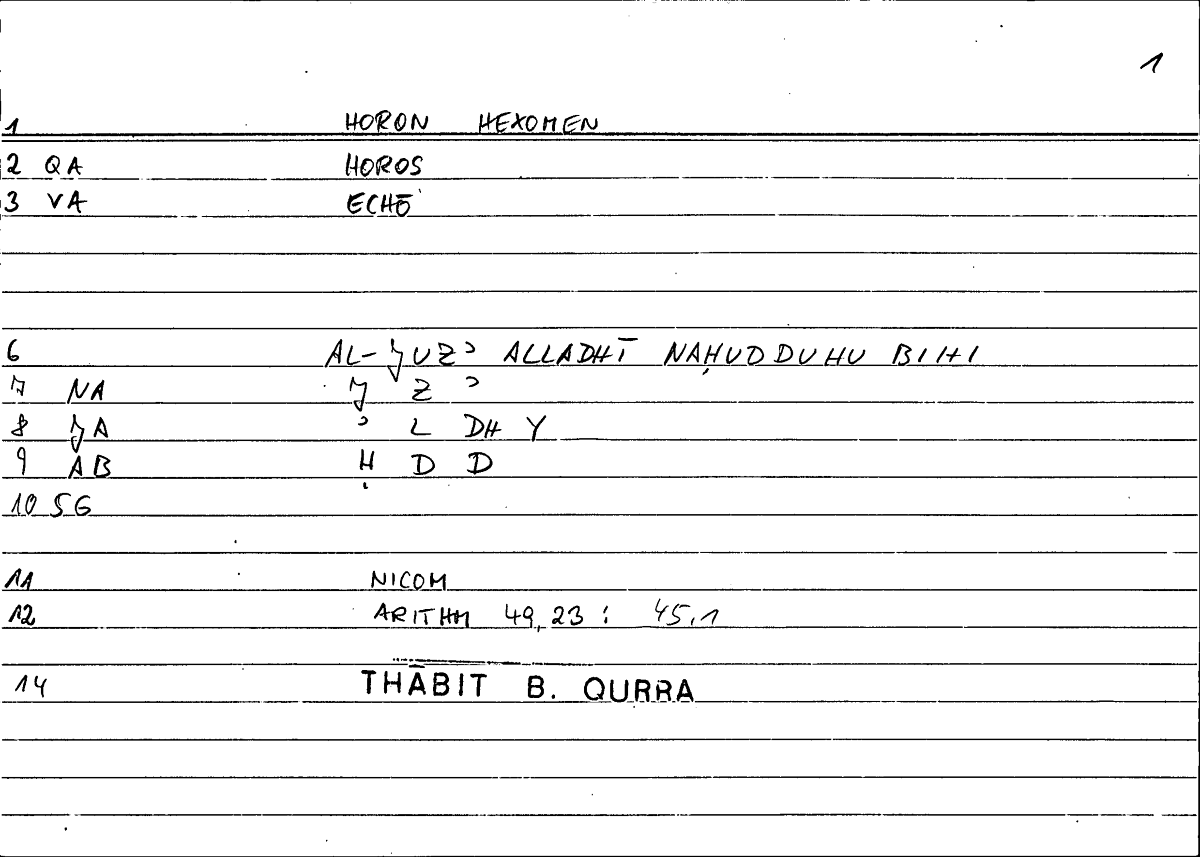 1
1 HORON HEXOMEN
2 QA HOROS
3 VA ECHŌ
6 AL-JUZʾ ALLADHĪ NAḤUDDUHU BIHI
7 NA J Z ʾ
8 JA ʾ L DH Y
9 AB Ḥ D D
10 SG
11 NICOM
12 ARITHM 49,23 : 45,1
14 THĀBIT B. QURRA